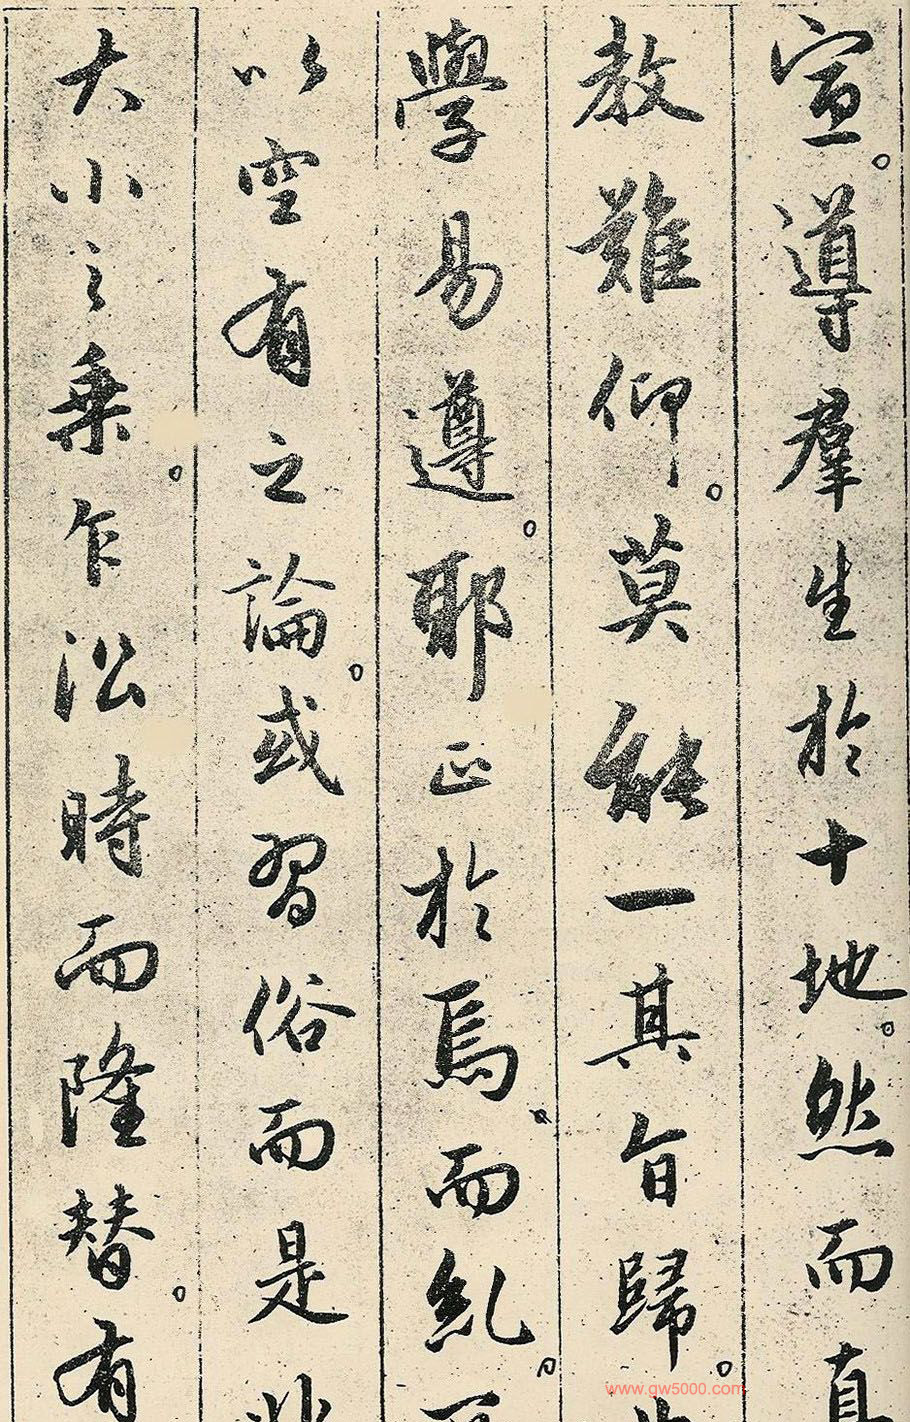 宣。導羣生於十地。然而真
教難仰。莫能一其旨歸。
學易遵。耶正於焉而紕。
以空有之論。或習俗而是
大小之乗。乍㳂時而隆替。有
www.gw5000.com